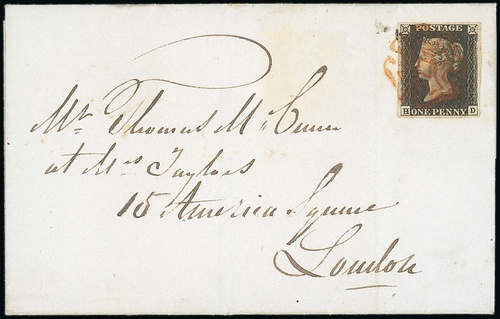 POSTAGE
ONE PENNY
H D
Mr Thomas McCunn
at Mrs Taylors
15 America Square
London